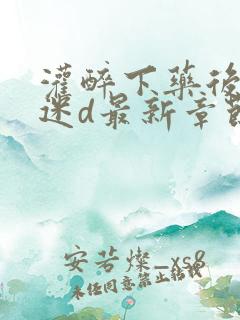 灌醉下藥後
迷d最新章節
安若燦_xs8
未经同意禁止转载